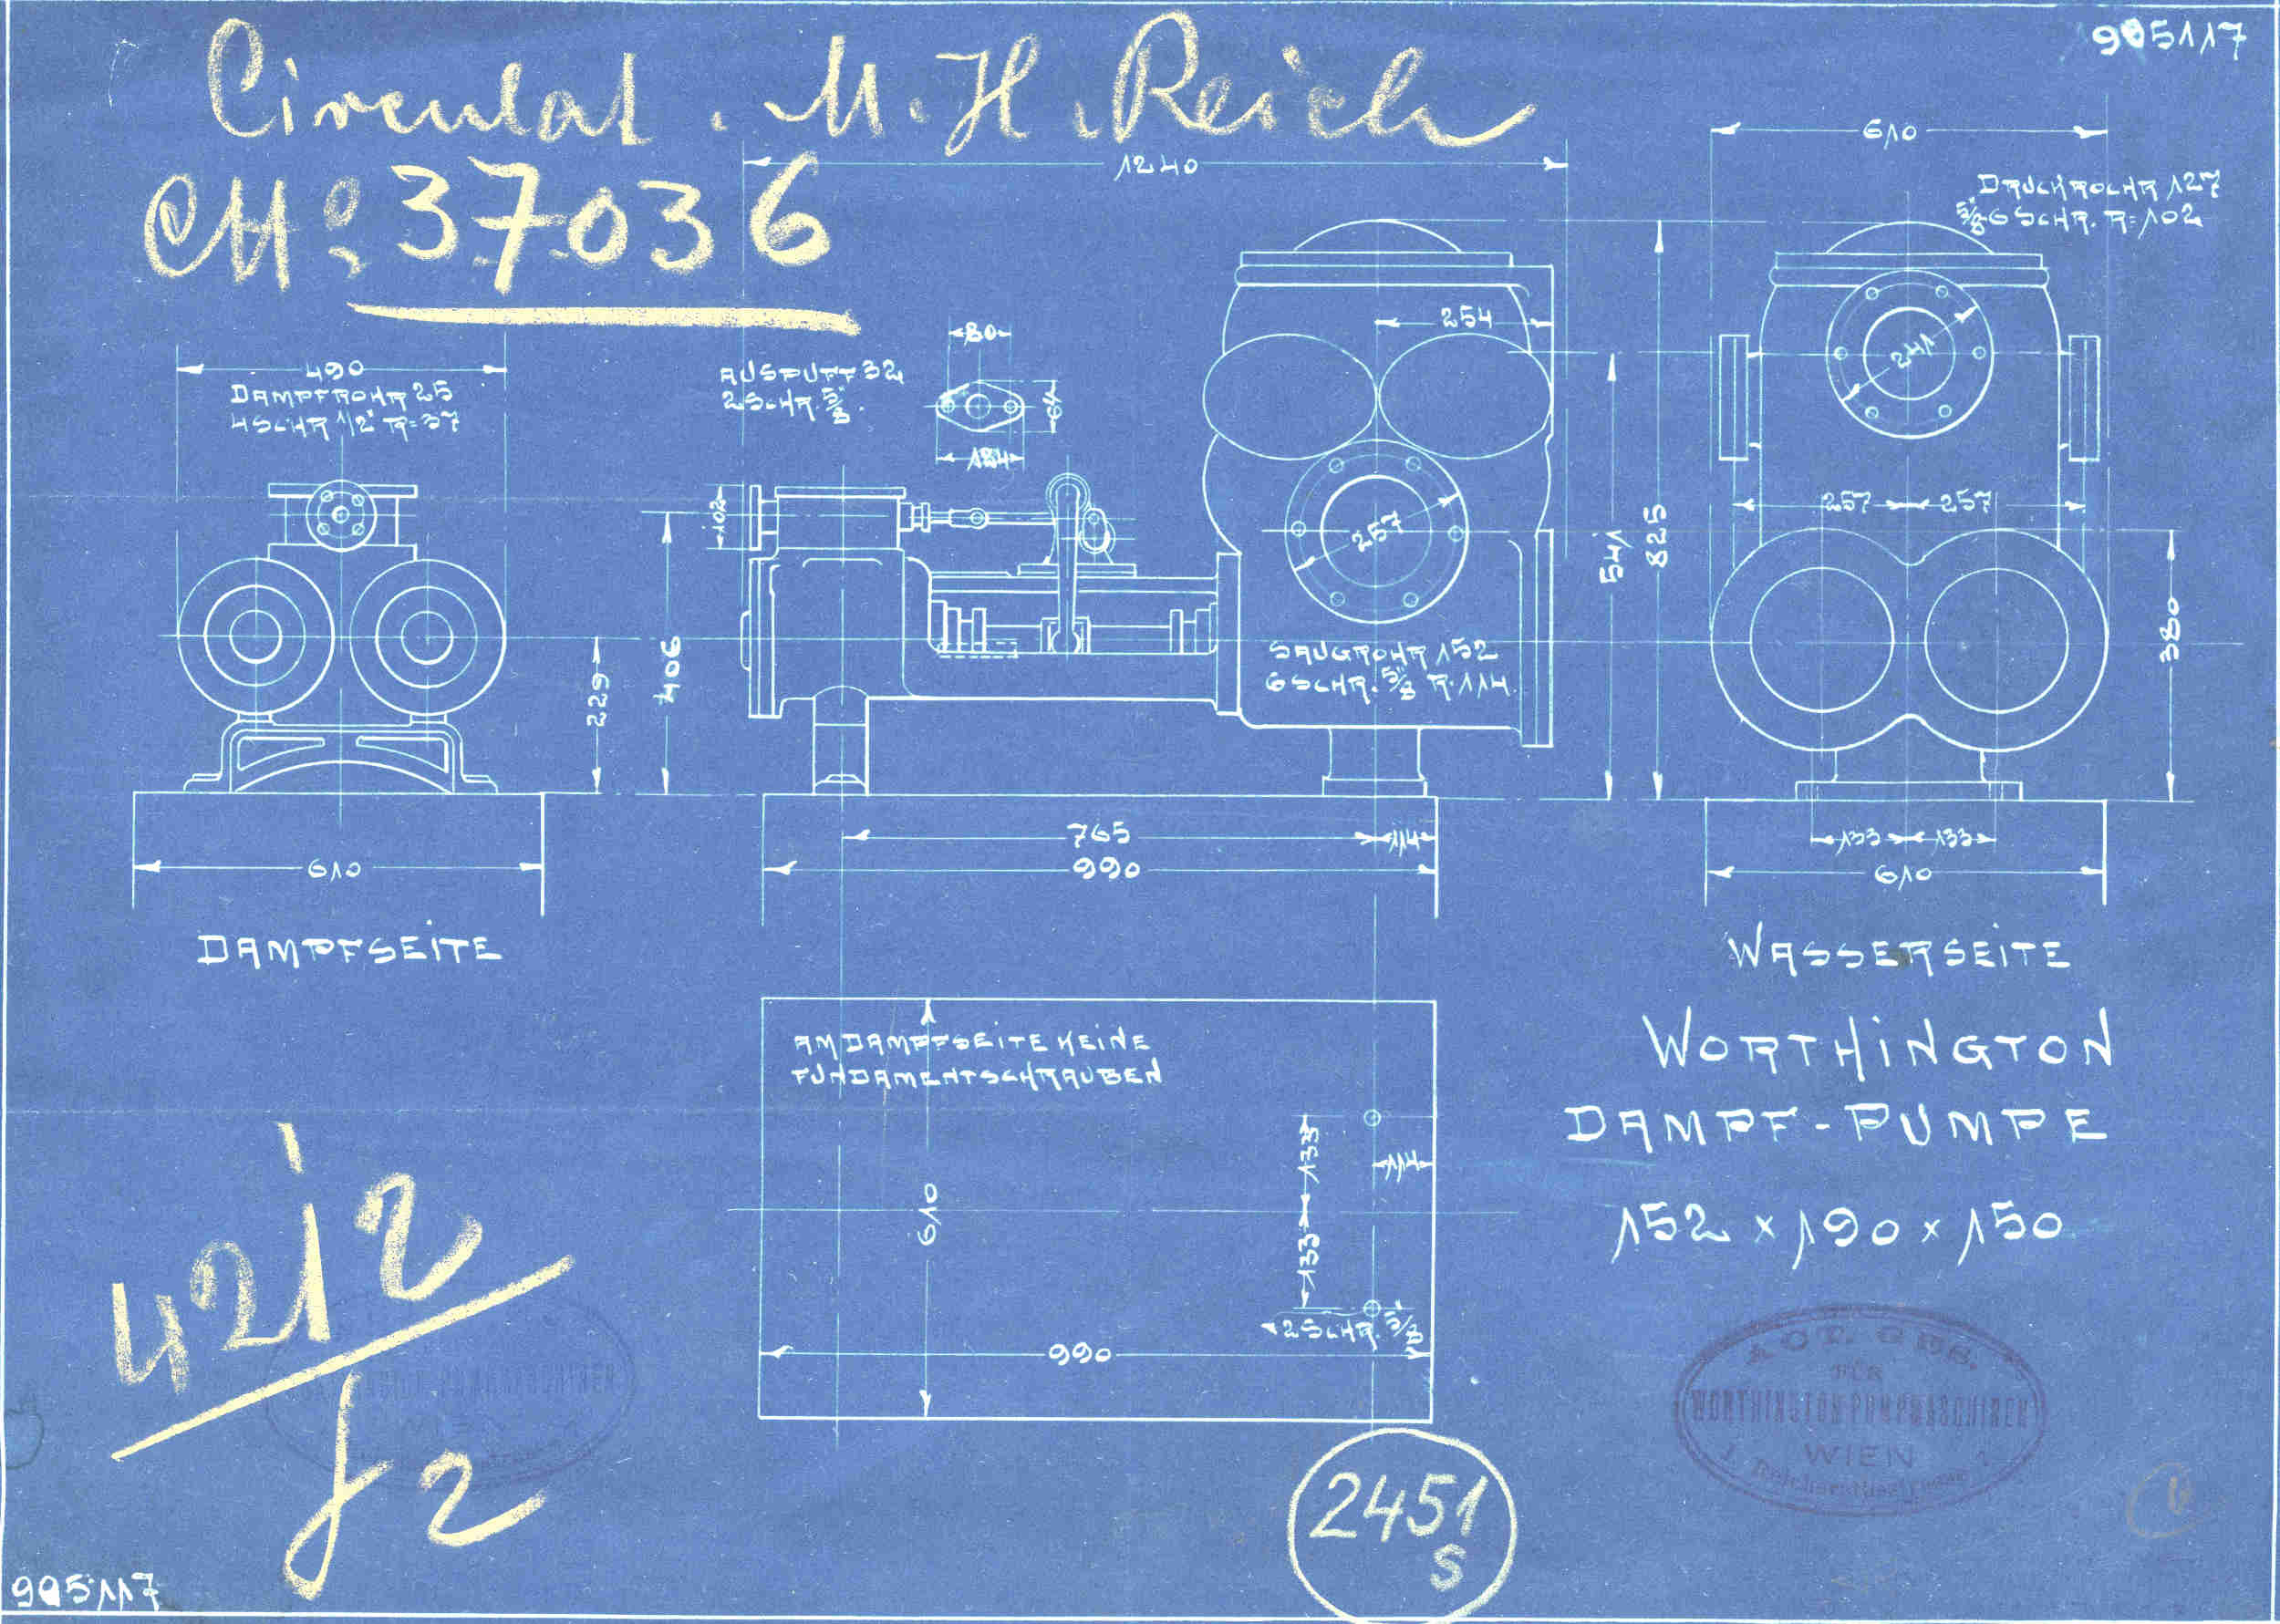 905117
Circulat. M. H. Reich
No 37036
1240
610
DRUCKROHR 127
5/8" 6 SCHR. R=102
254
241
490
DAMPFROHR 25
4 SCHR 1/2" R=37
AUSPUFF 32
2 SCHR. 5/8"
80
64
102
257
257
257
541
825
380
229
406
SAUGROHR 152
6 SCHR. 5/8" R. 114
765
114
990
610
133
133
610
DAMPFSEITE
WASSERSEITE
AM DAMPFSEITE KEINE
FUNDAMENTSCHRAUBEN
133
114
610
133
2 SCHR. 5/8"
990
WORTHINGTON
DAMPF-PUMPE
152 x 190 x 150
4212
f2
ACT. GES.
FÜR
WORTHINGTON PUMPMASCHINEN
WIEN
2451
S
905117